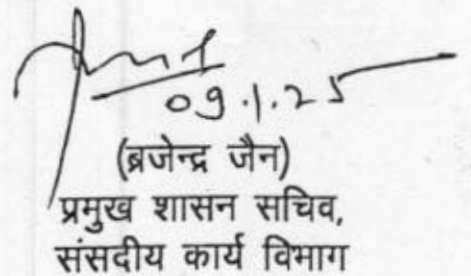 09.1.25
(ब्रजेन्द्र जैन)
प्रमुख शासन सचिव,
संसदीय कार्य विभाग